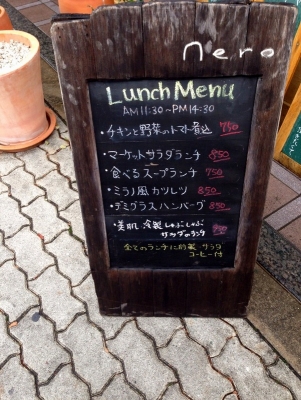 nero
Lunch Menu
AM11:30~PM14:30
・チキンと野菜のトマト煮込 750
・マーケットサラダランチ 850
・食べるスープランチ 750
・ミラノ風カツレツ 850
・デミグラスハンバーグ 850
・美肌 冷製しゃぶしゃぶ
サラダのランチ 850
全てのランチに前菜 サラダ
コーヒー付